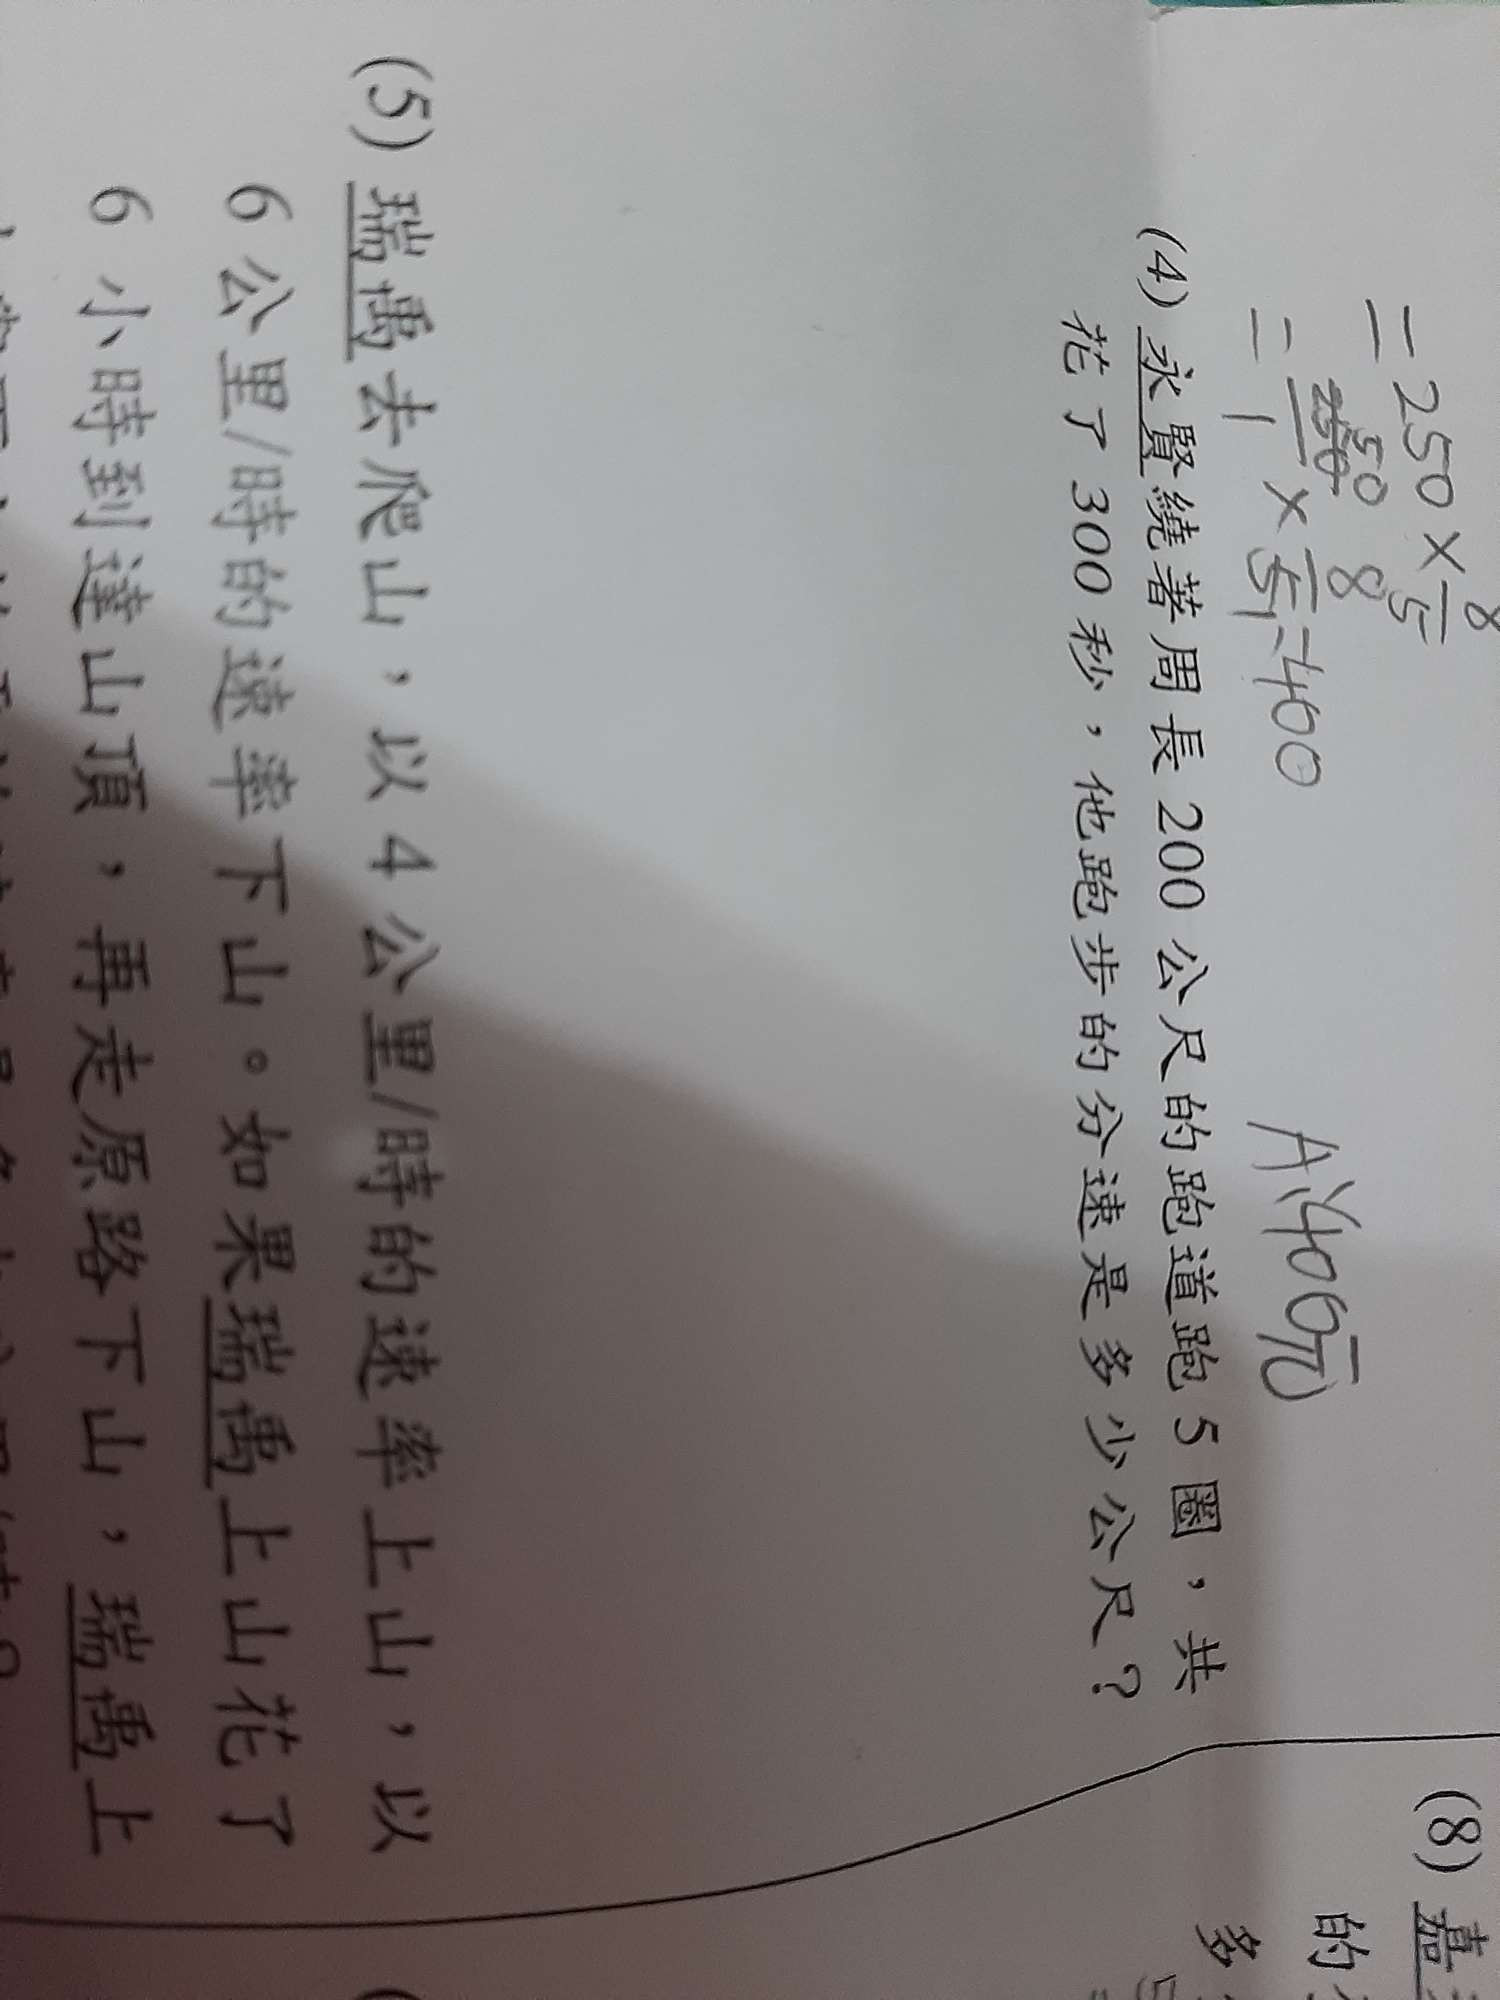 8
=250×5
50 8
=250/1×5=400
A:400元
(4) 永賢繞著周長 200 公尺的跑道跑 5 圈，共
花了 300 秒，他跑步的分速是多少公尺？
(5) 瑞禹去爬山，以 4 公里/時的速率上山，以
6 公里/時的速率下山。如果瑞禹上山花了
6 小時到達山頂，再走原路下山，瑞禹上
(8) 嘉
的
多